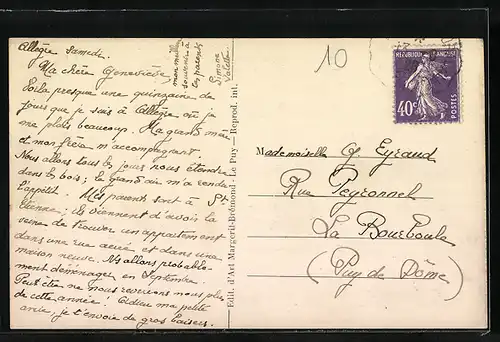 Allègre Samedi.
Ma chère Geneviève,
Voilà presque une quinzaine de
jours que je suis à Allègre où je
me plais beaucoup. Ma grand'mère
et mon frère m'accompagnent.
Nous allons tous les jours nous étendre
dans les bois; le grand air m'a rendu
l'appétit. Mes parents sont à St
Etienne; ils viennent d'avoir la
veine de trouver un appartement
dans une rue aérée et dans une
maison neuve. Ns allons probable-
ment déménager en Septembre.
Peut être ne nous reverrons nous plus
de cette année! Adieu ma petite
amie, je t'envoie de gros baisers.
mon meilleur
souvenir à
tes parents
Simone
Edit. d'Art Margerit-Brémond - Le Puy — Reprod. int.
10
REPUBLIQUE FRANÇAISE
40c
POSTES
Mademoiselle G. Eyraud
Rue Peyronnel
La Bourboule
(Puy de Dôme)